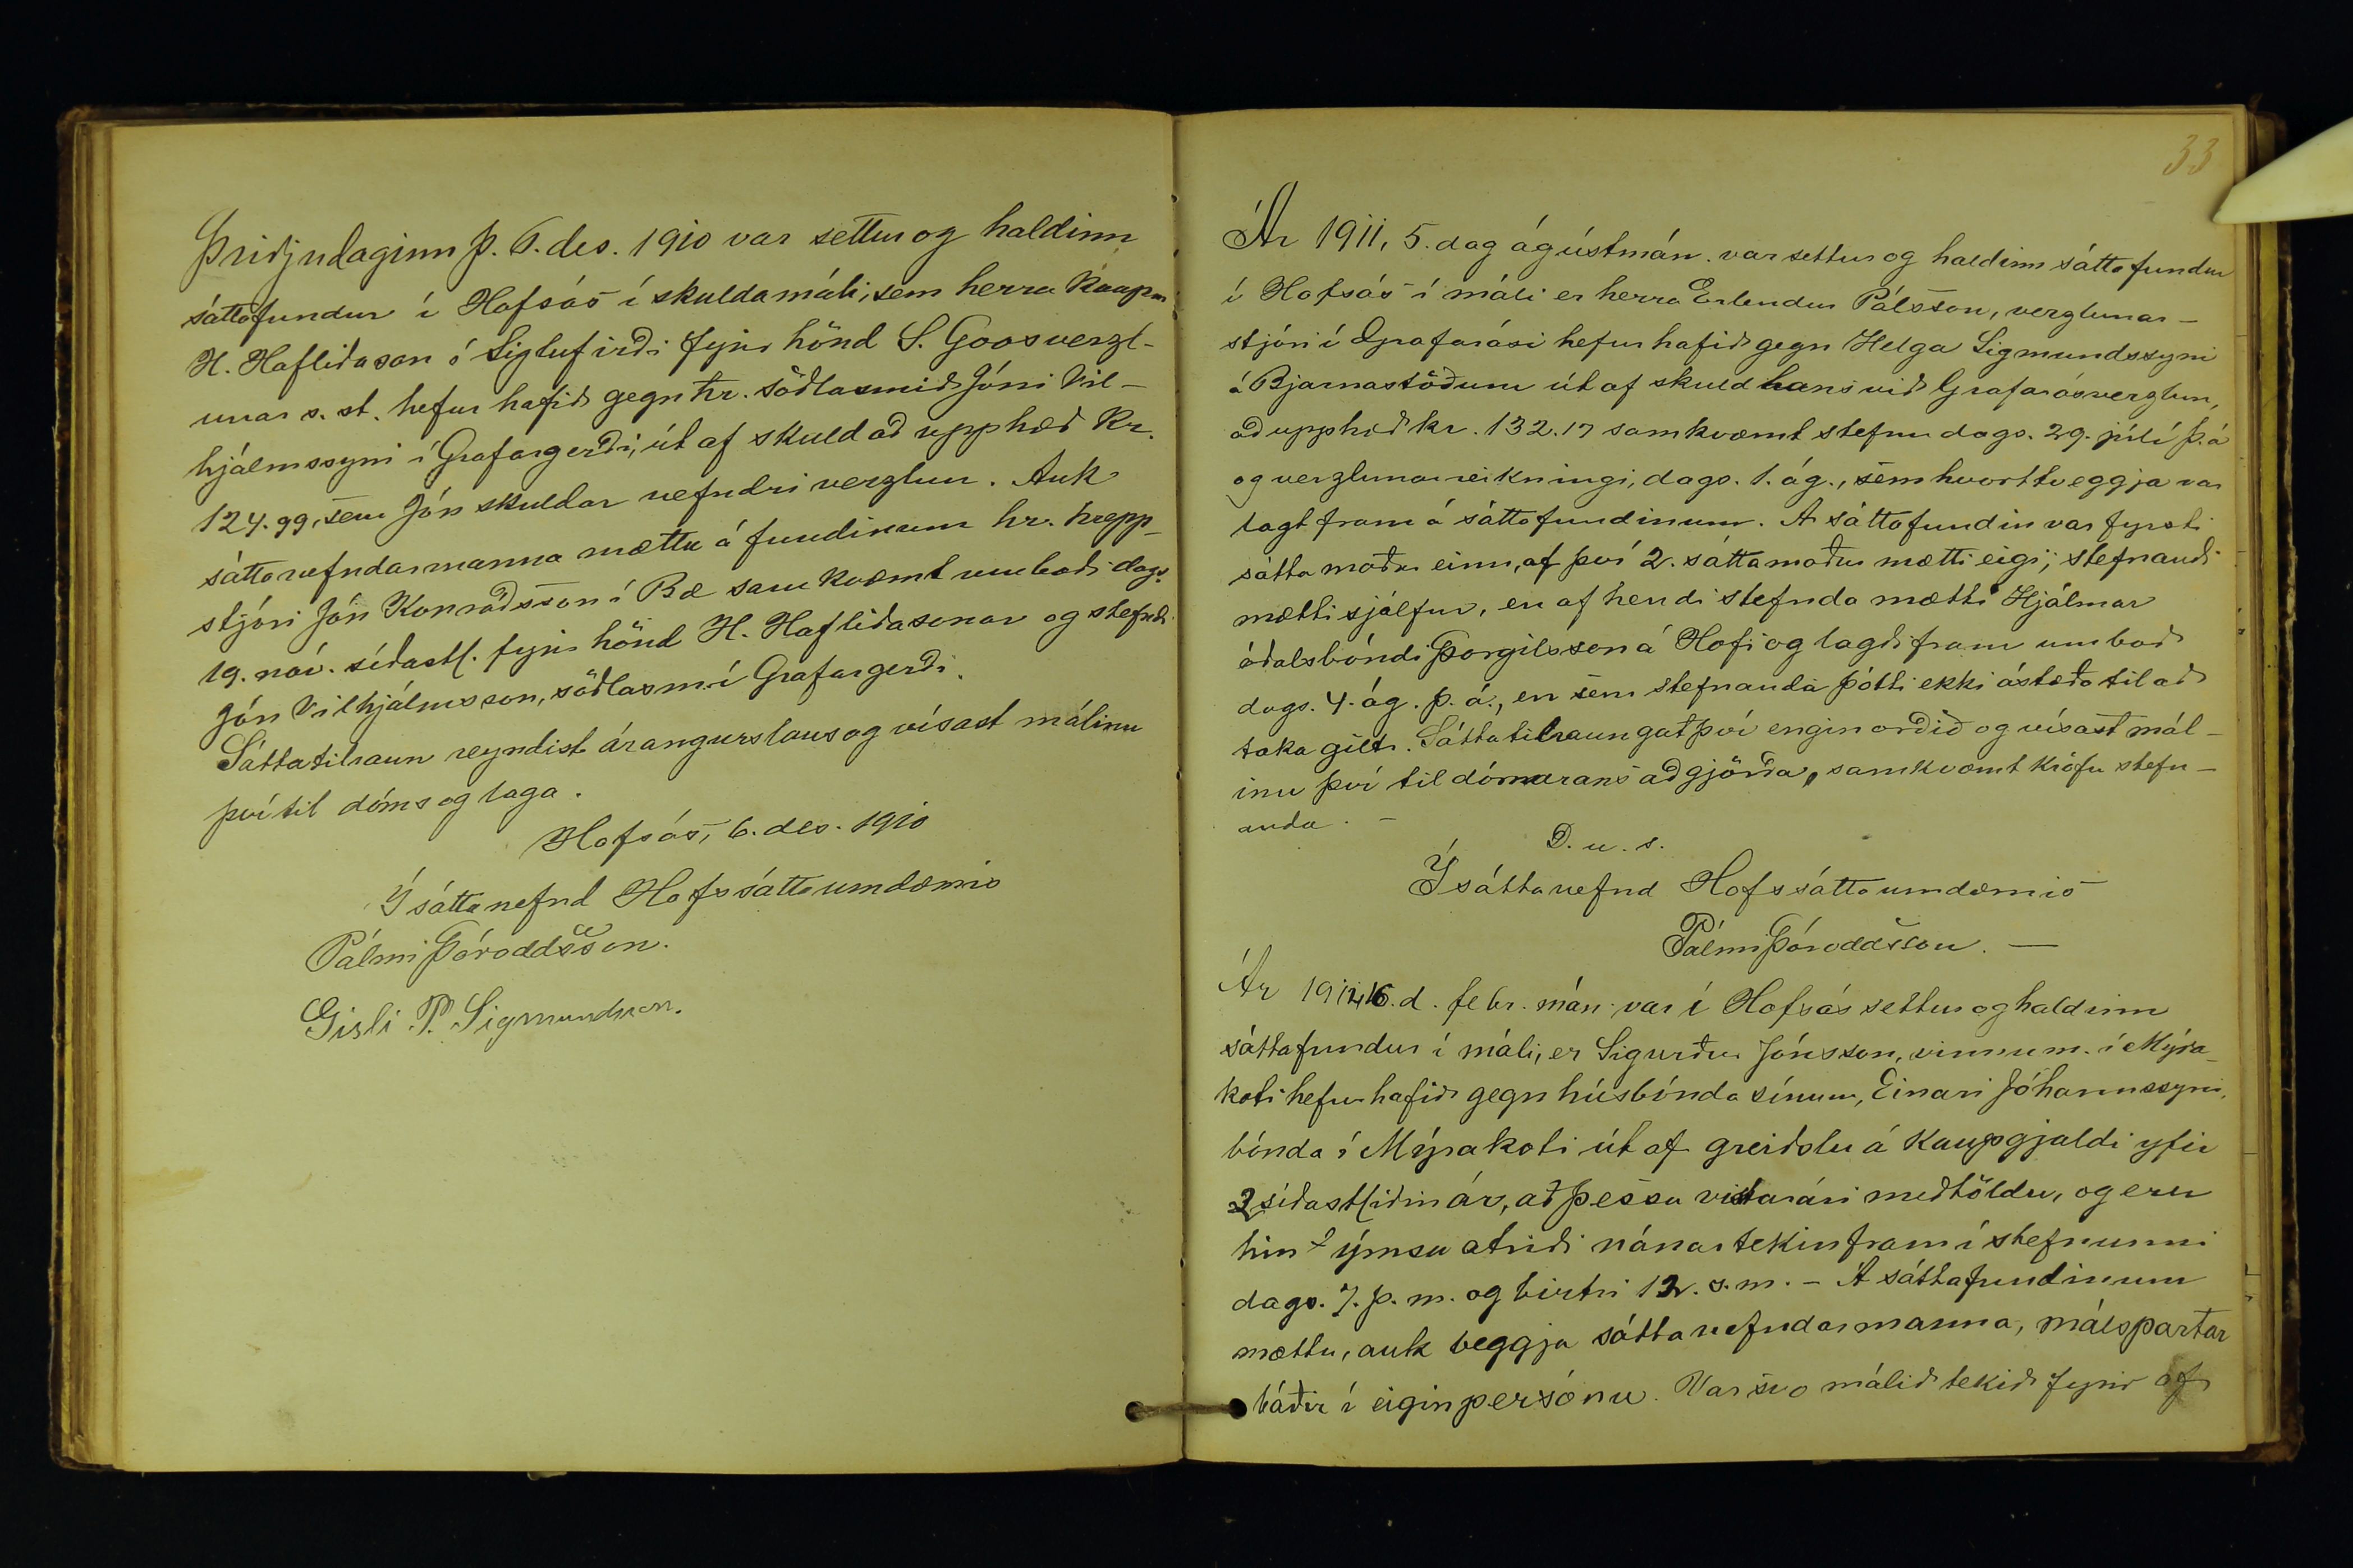 Þriðjudaginn þ. 6. des. 1910 var settur og haldinn
sáttafundur í Hofsós í skuldamáli, sem herra Kaupm
H. Hafliðason á Siglufirði fyrir hönd S. Goosverzl-
unar s. st. hefur hafið gegn hr. söðlasmið Jóni Vil-
hjálmssyni í Grafargerði, út af skuld að upphæð Kr.
124.99, sem Jón skuldar nefndri verzlun. Auk
sáttanefndarmanna mættu á fundinum hr. hrepp-
stjóri Jón Konráðsson í Bæ samkvæmt umboði dags.
19. nóv. síðastl. fyrir hönd H. Hafliðasonar og stefndi
Jón Vilhjálmsson, söðlasm. í Grafargerði.
Sáttatilraun reyndist árangurslaus og vísast málinu
því til dóms og laga.
Hofsós, 6. des. 1910
Í sáttanefnd Hofssáttaumdæmis
Pálmi Þóroddsson.
Gisli P. Sigmundsson.
33
Ár 1911, 5. dag ágústmán. var settur og haldinn sáttafundur
í Hofsós í máli er herra Erlendur Pálsson, verzlunar-
stjóri í Grafarósi hefur hafið gegn Helga Sigmundssyni
á Bjarnastöðum út af skuld hans við Grafarósverzlun,
að upphæð kr. 132.17 samkvæmt stefnu dags. 29. júlí þ. á
og verzlunarreikningi, dags. 1. ág., sem hvorttveggja var
lagt fram á sáttafundinum. Á sáttafundin var fyrsti
sáttamaður einn, af því 2. sáttamaður mætti eigi; stefnandi
mætti sjálfur, en af hendi stefnda mætti Hjálmar
óðalsbóndi Þorgilsson á Hofi og lagði fram umboð
dags. 4. ág. þ. á., en sem stefnanda þótti ekki ástæða til að
taka gilt. Sáttatilraun gat því engin orðið og vísast mál-
inu því til dómarans aðgjörða, samkvæmt kröfu stefn-
anda. -
D. u. s.
Í sáttanefnd Hofssáttaumdæmis
Pálmi Þóroddsson. —
Ár 1914 16. d. febr. mán. var í Hofsós settur og haldinn
sáttafundur í máli, er Sigurður Jónsson, vinnum. í Mýra-
koti hefur hafið gegn húsbónda sínum, Einari Jóhannssyni,
bónda í Mýrakoti út af greiðslu á Kaupgjaldi yfir
3 síðastliðin ár, að þessu vistarári meðtöldu, og eru
hin ýmsu atriði nánar tekin fram í stefnunni
dags. 7. þ. m. og birtri 12. s. m. - Á sáttafundinum
mættu, auk beggja sáttanefndarmanna, málspartar
báðir í eigin persónu. Var svo málið tekið fyrir af